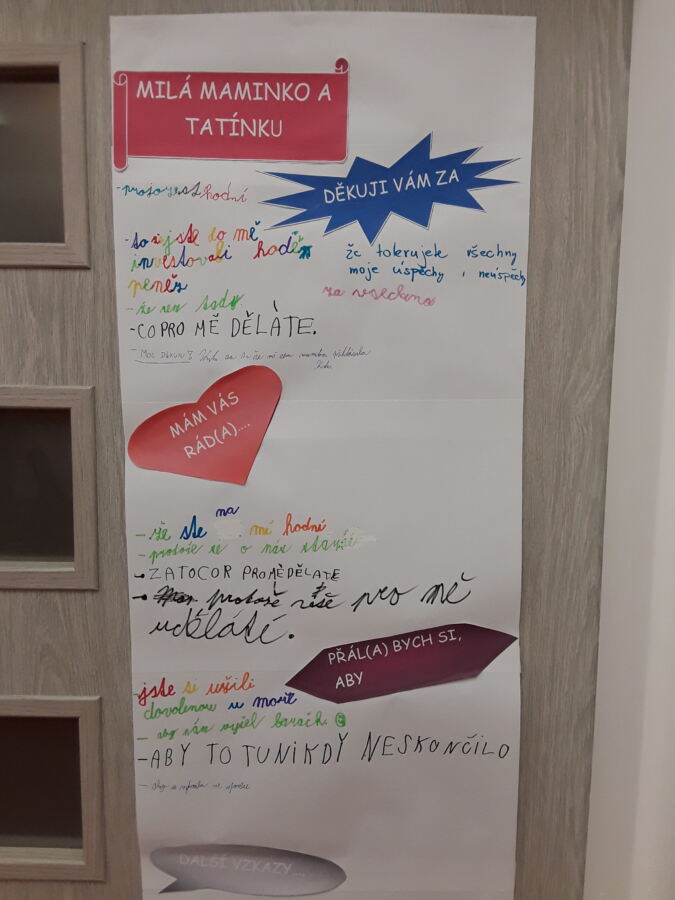 MILÁ MAMINKO A
TATÍNKU
DĚKUJI VÁM ZA
hodní
- to že jste do mě
investovali hodě
peněz
že tolerujete všechny
moje úspěchy i neúspěchy
za všechno
- že ten sady
- CO PRO MĚ DĚLÁTE.
- MOC DĚKUJI!
MÁM VÁS
RÁD(A)....
- že ste na mě hodné
- protože se o nás
- ZATOCOR PROMĚDĚLATE
protože pro mě
uděláté.
PŘÁL(A) BYCH SI,
ABY
jste si užili
dovolenou u moře
- aby nám vyšel barách
- ABY TO TU NIKDY NESKONČILO
DALŠÍ VZKAZY....